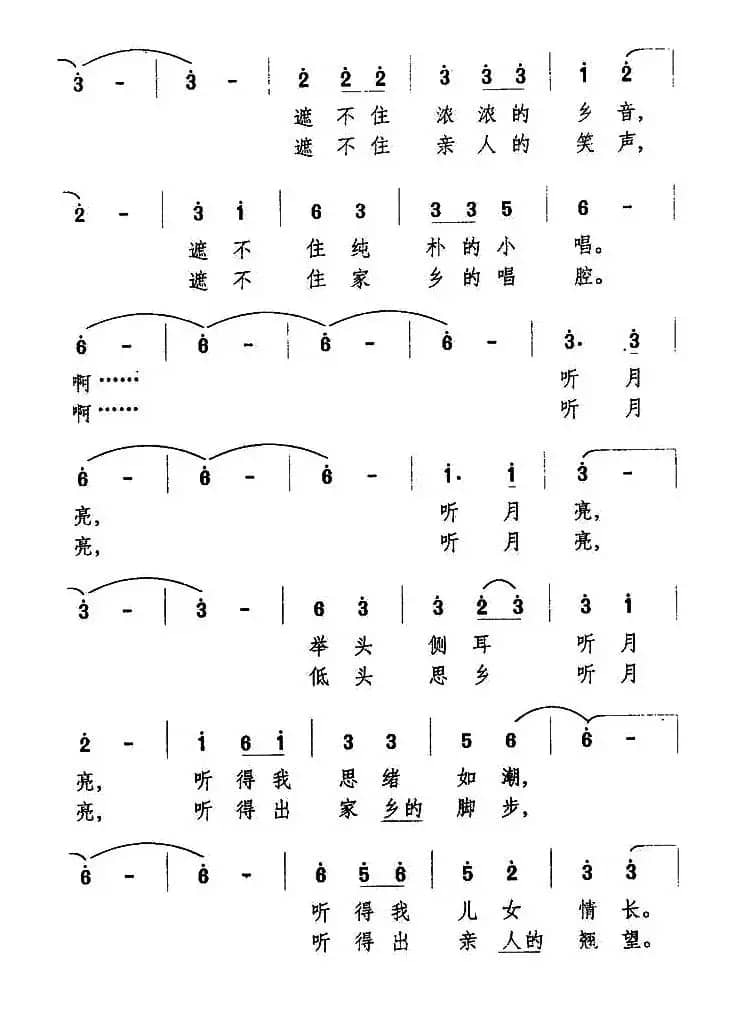 3 - | 3 - | 2 2 2 | 3 3 3 | 1 2 |
遮不住 浓浓的 乡音,
遮不住 亲人的 笑声,
2 - | 3 1 | 6 3 | 3 3 5 | 6 - |
遮不 住纯 朴的小 唱。
遮不 住家 乡的唱 腔。
6 - | 6 - | 6 - | 6 - | 3. 3 |
啊…… 听月
啊…… 听月
6 - | 6 - | 6 - | 1. 1 | 3 - |
亮, 听月 亮,
亮, 听月 亮,
3 - | 3 - | 6 3 | 3 2 3 | 3 1 |
举头 侧耳 听月
低头 思乡 听月
2 - | 1 6 1 | 3 3 | 5 6 | 6 - |
亮, 听得我 思绪 如潮,
亮, 听得出 家乡的 脚步,
6 - | 6 - | 6 5 6 | 5 2 | 3 3 |
听得我 儿女 情长。
听得出 亲人的 翘望。